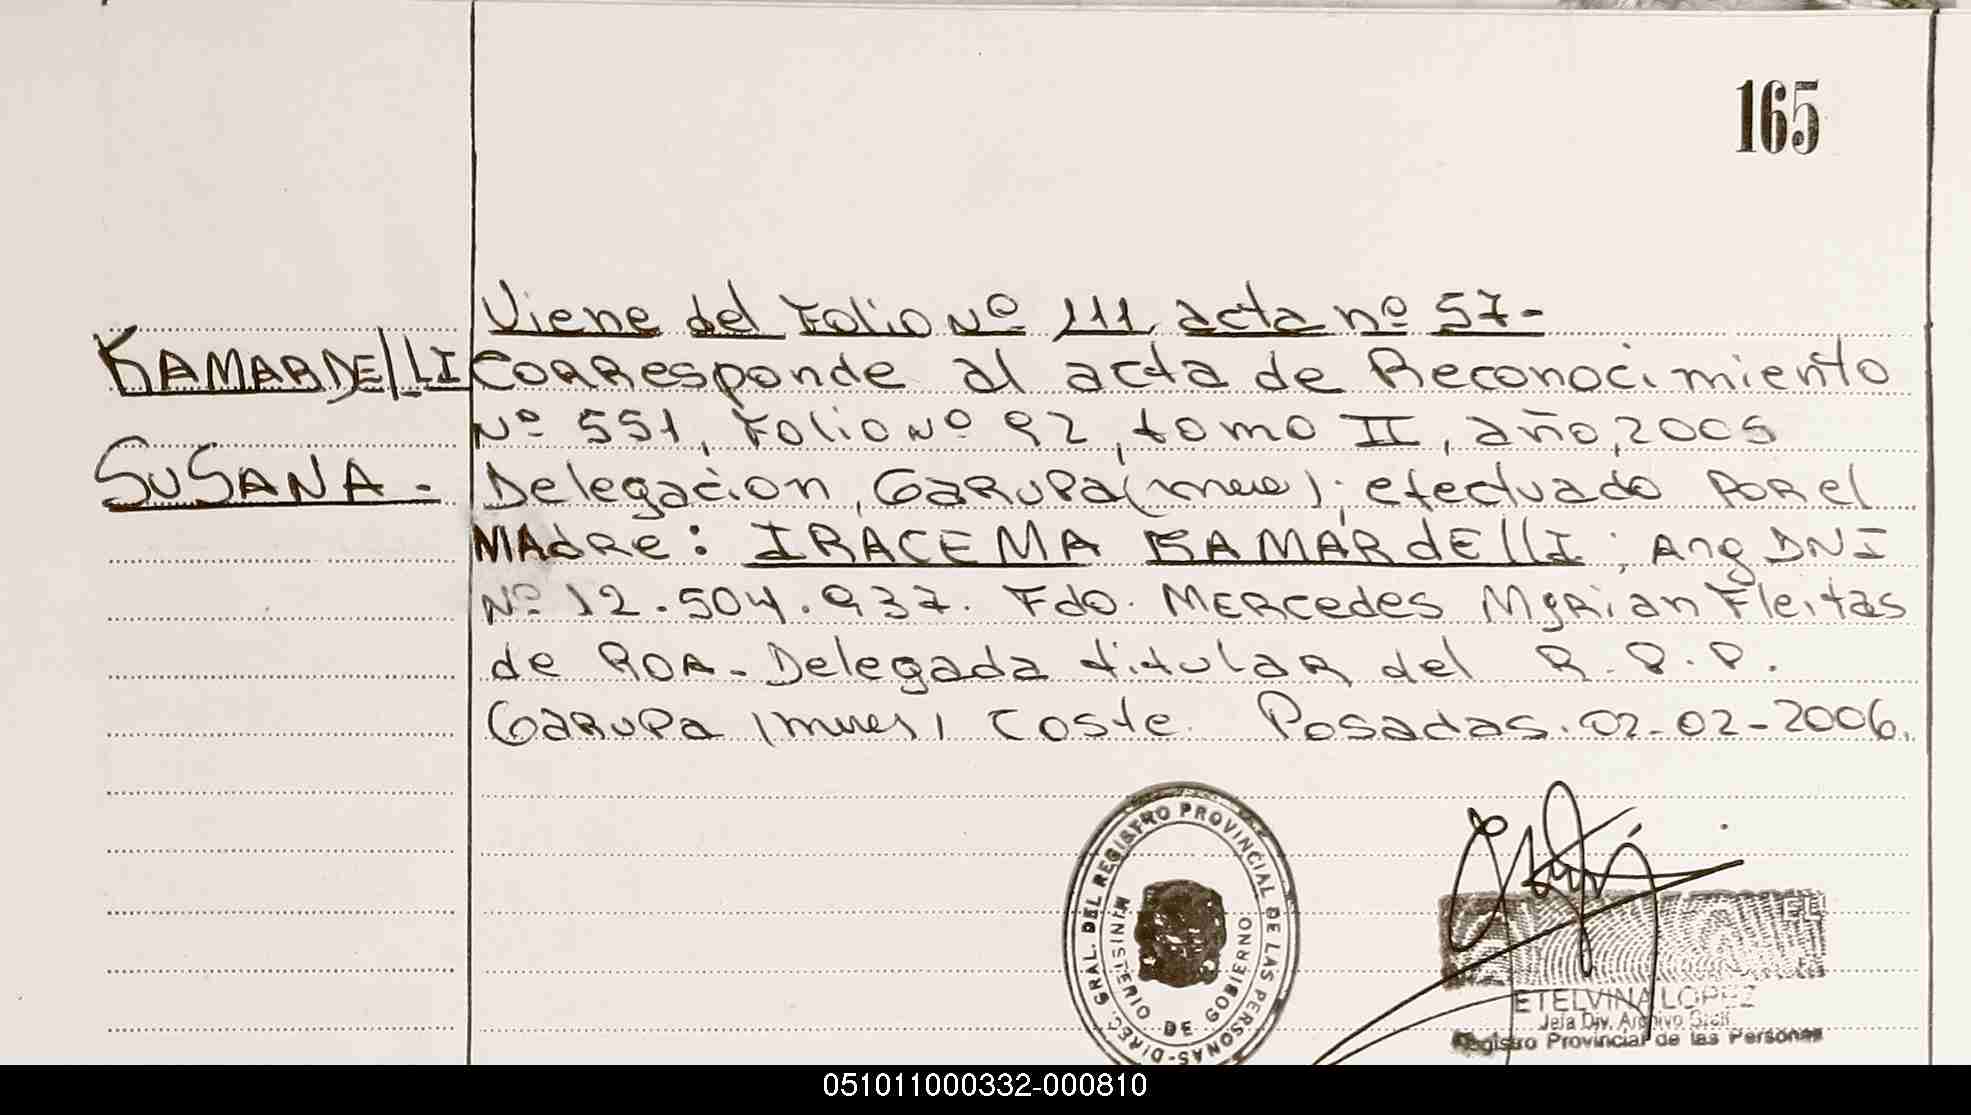 165
Viene del Folio Nº 111 acta nº 57-
KAMARDELLI
CORResponde al acta de Reconocimiento
Nº 551, Folio Nº 92, tomo II, año, 2005
SUSANA.-
Delegación, GARUPA (mnes); efectuado POR el
MAdRe: IRACEMA KAMARdELLI; Arg DNI
Nº 12.504.937. Fdo. MERCedes MyRian Fleitas
de ROA-Delegada titulAR del R.P.P.
GARUPA (mnes) Coste. Posadas. 02-02-2006.
DIREC. GRAL. DEL REGISTRO PROVINCIAL DE LAS PERSONAS-
MINISTERIO DE GOBIERNO
ETELVINA LOPEZ
Jefa Div. Archivo
Registro Provincial de las Personas
051011000332-000810